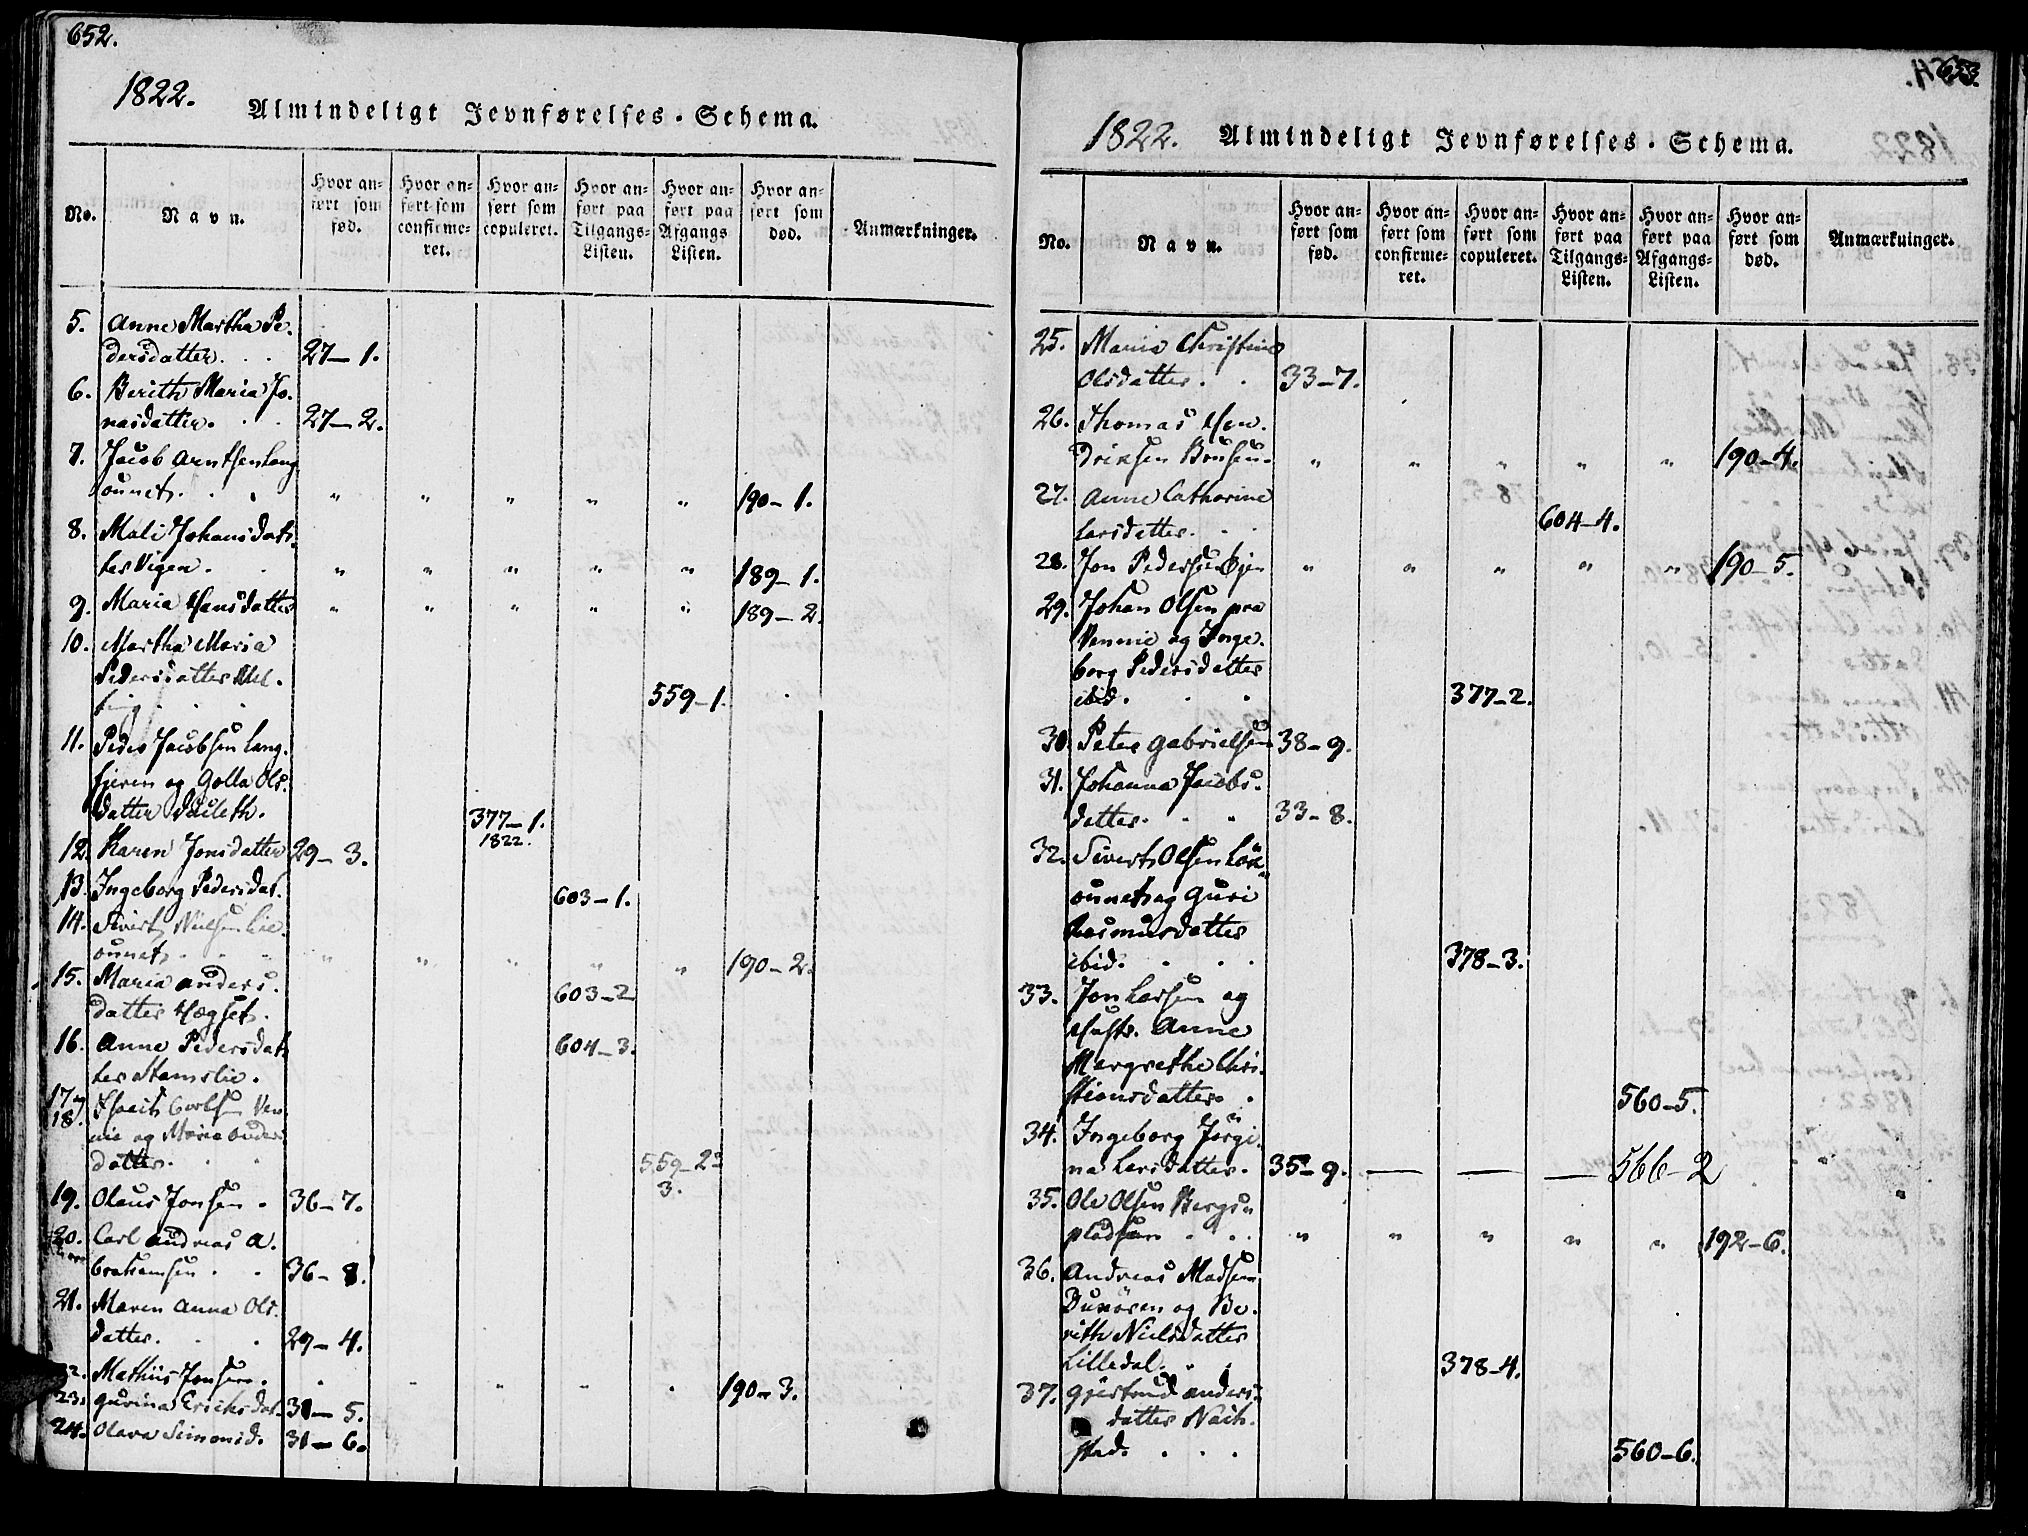 652.
1822. Almindeligt Jevnførelses-Schema.
No. Navn. Hvor anført som fød. Hvor anført som confirmeret. Hvor anført som copuleret. Hvor anført paa Tilgangs-Listen. Hvor anført paa Afgangs Listen. Hvor anført som død. Anmærkninger.
5. Anne Martha Pe-
dersdatter. . . 27-1.
6. Berith Maria Jo-
nasdatter. . . 27-2.
7. Jacob Arntsen Lang
ounet. . . " " " " " 190-1.
8. Mali Johansdat-
ter Vigen. . " " " " " 189-1.
9. Maria Hansdatter " " " " " 189-2.
10. Martha Maria
Pedersdatter Mel-
. . 559-1.
11. Peder Jacobsen Lang-
fjeren og Golla Ols-
datter 377-1.
1822.
12. Karen Jonsdatter 29-3.
13. Ingeborg Pedersdat. 603-1.
14. Sivert Nielsen Lie-
ounet. . . " " " " " 190-2.
15. Maria Anders-
datter Hægset. 603-2
16. Anne Pedersdat-
ter Stamslie. 604-3.
17 og
18. Carlsen Ven-
nie og Maria Anders-
datter. . . 559-2 og
3.
19. Olaus Jonsen . 36-7.
20. Carl Andreas A-
brahamsen . . 36-8.
21. Maren Anna Ols-
datter. . . 29-4.
22. Mathias Jonsen. . " " " . 190-3.
23. Gurina Ericksdat. 31-5.
24. Olava Simonsd. 31-6.
653.
1822. Almindeligt Jevnførelses-Schema.
No. Navn. Hvor anført som fød. Hvor anført som confirmeret. Hvor anført som copuleret. Hvor anført paa Tilgangs-Listen. Hvor anført paa Afgangs-Listen. Hvor anført som død. Anmærkninger.
25. Maria Christine
Olsdatter. . 33-7.
26. Thomas Hen-
driksen " " " " " 190-4.
27. Anne Cathorine
Larsdatter. . . 604-4.
28. Jon Pedersen " " " " " 190-5.
29. Johan Olsen paa
Vennie og Inge-
borg Pedersdatter
ibid. . . 377-2.
30. Peter Gabrielsen 38-9.
31. Johanna Jacobs-
datter. . . 33-8.
32. Sivert Olsen Løk-
ounet og Guri
Rasmusdatter
ibid. . . . 378-3.
33. Jon Larsen og
Hustr. Anne
Margrethe Chri-
stiansdatter . 560-5.
34. Ingeborg Jørgi-
na Larsdatter. 35-9. — — — 566-2 "
35. Ole Olsen Bergs-
pladsen . . . " " " " " 192-6.
36. Andreas Madsen
og Be-
rith Nielsdatter
Lilledal. . . 378-4.
37. Gjertrud Anders-
datter
stad. . . . 560-6.